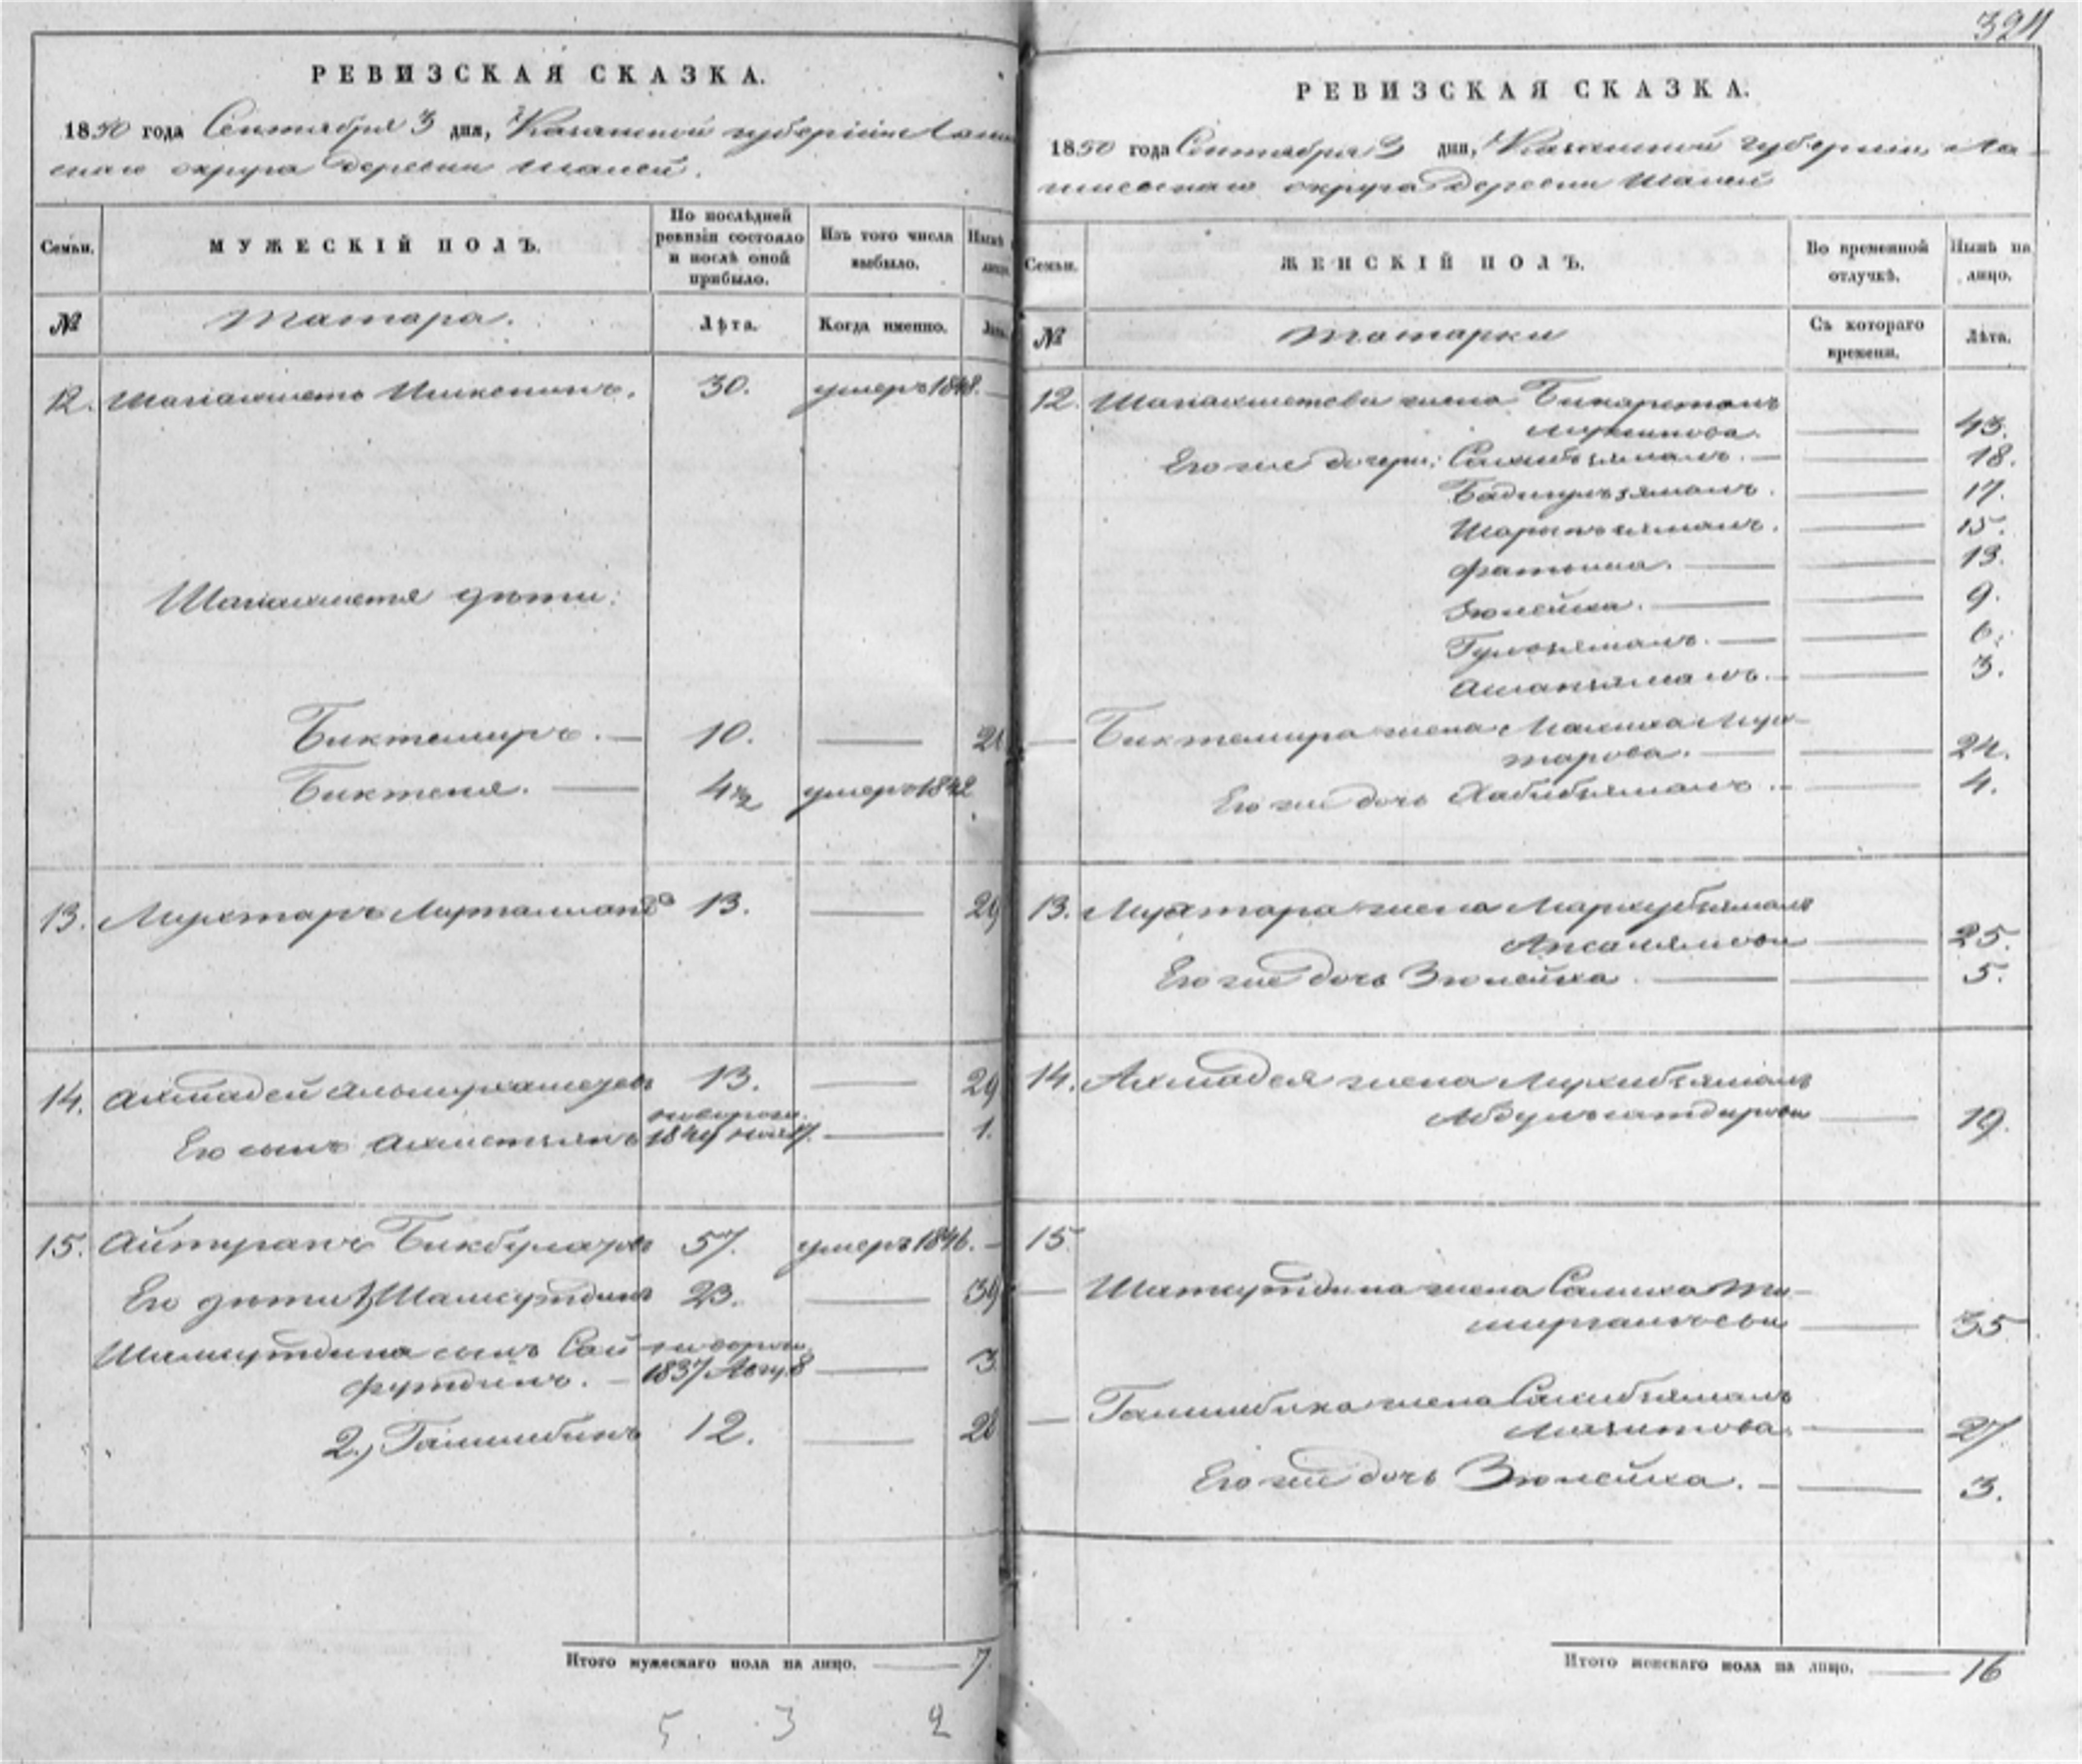 324
РЕВИЗСКАЯ СКАЗКА.
1850 года Сентября 3 дня, Казанской губернiи Лаиш
скаго округа деревни Шалей.
Семьи.
МУЖЕСКІЙ ПОЛЪ.
По послѣдней
ревизіи состояло
и послѣ оной
прибыло.
Изъ того числа
выбыло.
Нынѣ
лицо.
№
Татара.
Лѣта.
Когда именно.
Лѣта.
12. Шагiахметъ 30. умеръ 1848. —
Шагiахметя дѣти:
Биктемиръ. — 10. — 21
Биктеня. — 4½ умеръ 1842
13. Мухтаръ 13. — 29
14. Ахмадей 13. — 29
новорож.
Его сынъ Ахметзянъ 1849 — 1.
15. Айтуганъ Бикбулатовъ 57. умеръ 1846. —
Его дѣти 1, Шамсутдинъ 23. — 39
Шамсутдина сынъ Сай новорож.
футдинъ. — 1837 Авгу. 8 — 3
2, Галимбикъ 12. — 28
Итого мужескаго пола на лицо. — 7
5. 3 2
РЕВИЗСКАЯ СКАЗКА.
1850 года Сентября 3 дня, Казанской губернiи, Ла-
ишевскаго округа деревни Шалей
Семьи.
ЖЕНСКІЙ ПОЛЪ.
Во временной
отлучкѣ.
Нынѣ на
лицо.
№
Татарки
Съ котораго
времени.
Лѣта.
12. Шагiахметева жена
— 43.
Его же дочери: Сахибзямалъ. — — 18.
Бадигулъзямалъ. — 17.
Шарыпзямалъ. — 15.
Фатыма. — — 13.
Зюлейха. — — 9.
Гулзямалъ. — — 6.
— — 3.
— Биктемира жена Малиха Мух-
тарова. — — 24.
Его же дочь Хабибзямалъ. — — 4.
13. Мухтара жена Мархубзямалъ
Апсалямова — 25.
Его же дочь Зюлейха. — — 5.
14. Ахмадея жена Мухибзямалъ
— 19.
15.
— Шамсутдина жена Салиха Ти-
— 35
— Галимбика жена Сахибзямалъ
— 27
Его же дочь Зюлейха. — — 3.
Итого женскаго пола на лицо. — 16